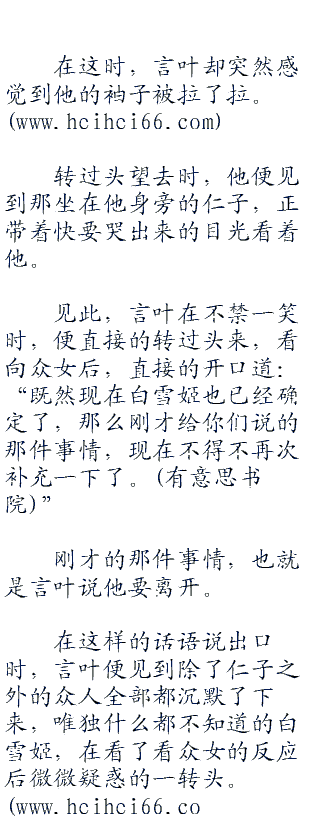 在这时，言叶却突然感
觉到他的袖子被拉了拉。
(www.hcihci66.com)
转过头望去时，他便见
到那坐在他身旁的仁子，正
带着快要哭出来的目光看着
他。
见此，言叶在不禁一笑
时，便直接的转过头来，看
向众女后，直接的开口道：
“既然现在白雪姬也已经确
定了，那么刚才给你们说的
那件事情，现在不得不再次
补充一下了。(有意思书
院)”
刚才的那件事情，也就
是言叶说他要离开。
在这样的话语说出口
时，言叶便见到除了仁子之
外的众人全部都沉默了下
来，唯独什么都不知道的白
雪姬，在看了看众女的反应
后微微疑惑的一转头。
(www.hcihci66.co